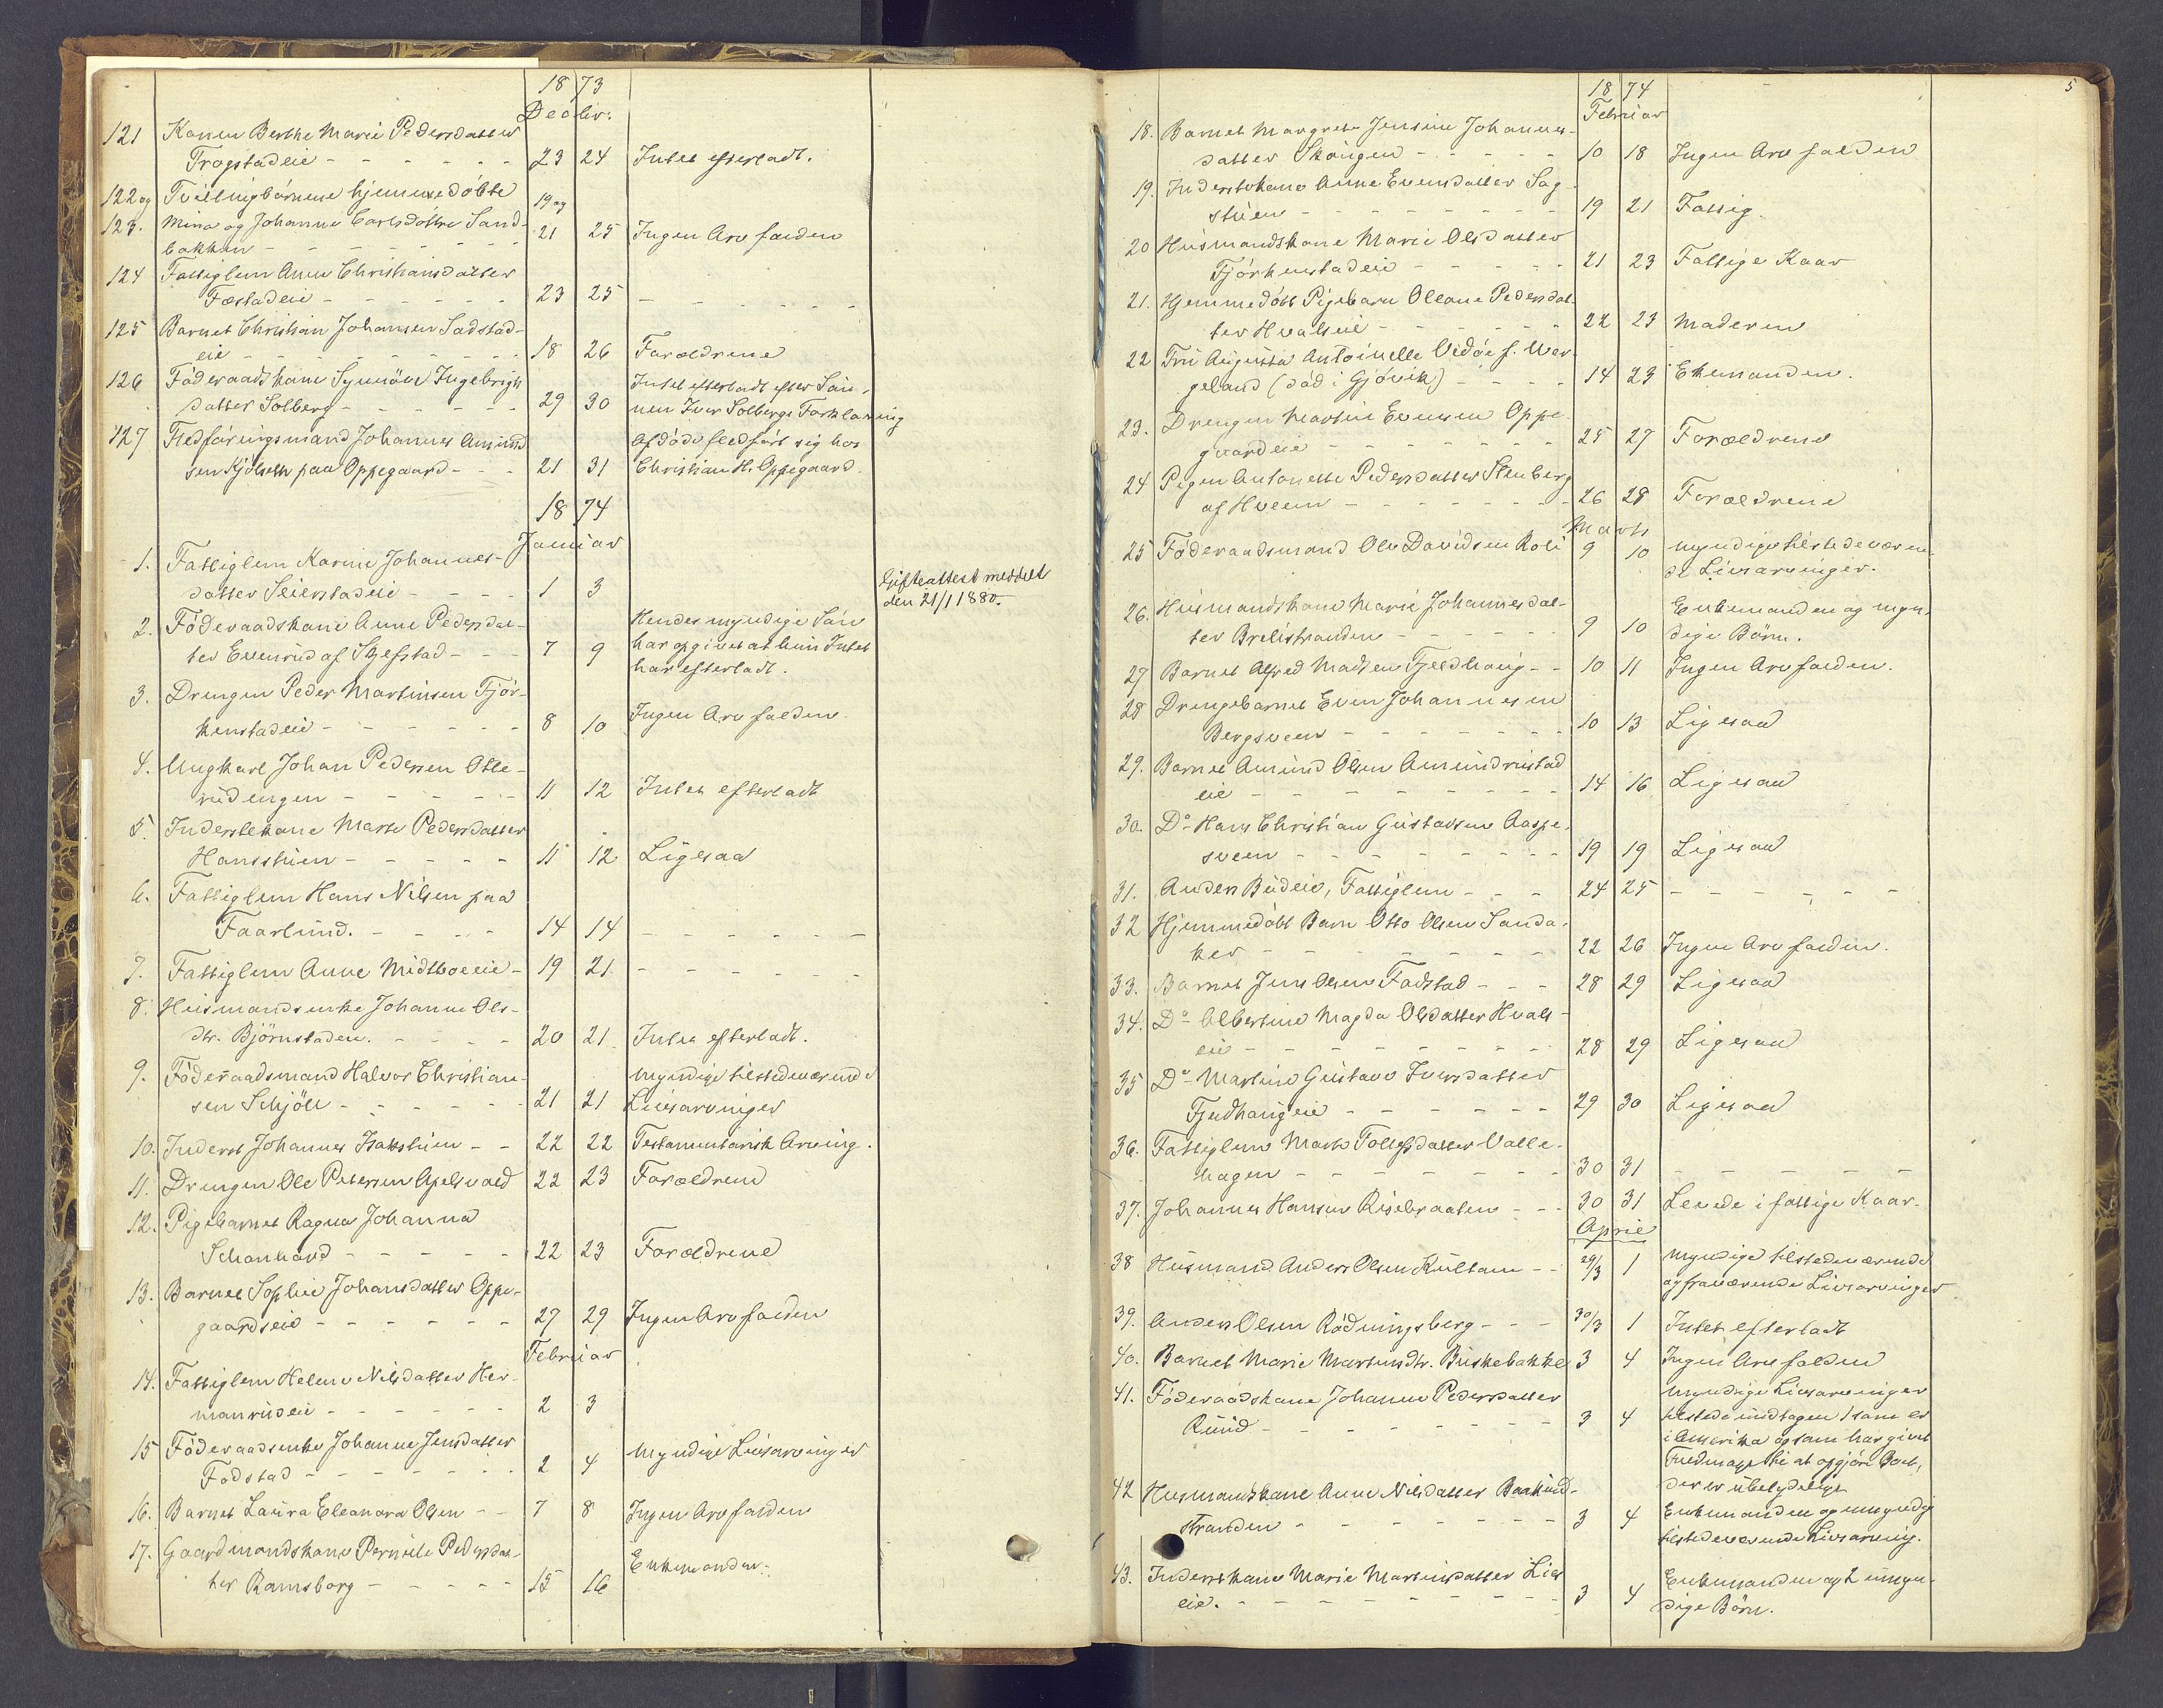 18 73
Decbr.
121 Konen Berthe Marie Pedersdatter
Trogstadeie - - - - - - 23 24 Intet efterladt.
122 og Tvillingbörnene hjemmedöbte 19 og
123. Mina og Johanne Carlsdöttre Sand- 21 25 Ingen Arv falden
bakken - - - - - - -
124 Fattiglem Anne Christiansdatter
Fæstadeie - - - - - - 23 25 - - - - - -
125 Barnet Christian Johansen Sadstad-
eie - - - - - - - 18 26 Forældrene
126 Föderaadskone Synnöve Ingebrigts
datter Solberg - - - - - 29 30 Intet efterladt efter Sön-
nen Iver Solbergs Forklaring
127 Fledföringsmand Johannes Amund
sen Kjölseth paa Oppegaard - - - 21 31 Afdöde fledfört sig hos
Christian H. Oppegaard.
18 74
Januar
1. Fattiglem Karine Johannes-
datter Seierstadeie - - - - 1 3
Gifteattest meddelt
den 21/1 1880.
2. Föderaadskone Anne Pedersdat-
ter Evenrud af Skjefstad - - - 7 9 Hendes myndige Sön
har opgivet at hun Intet
har efterladt.
3. Drengen Peder Martinsen Fjör-
kenstadeie - - - - - - 8 10 Ingen Arv falden.
4. Ungkarl Johan Pedersen Otte-
rudengen - - - - - 11 12 Intet efterladt
5. Inderstekone Marte Pedersdatter
Hansstuen - - - - - 11 12 Ligesaa
6. Fattiglem Hans Nilsen paa
Faarlund. - - - - 14 14 - - - - - -
7. Fattiglem Anne Midtboeeie - 19 21 - - - - - -
8. Huusmandsenke Johanne Ols-
dtr. Björnstaden. - - - - 20 21 Intet efterladt.
9. Föderaadsmand Halvor Christian-
sen Schjöll - - - - - - 21 21 Myndige tilstedeværende
Livsarvinger
10. Inderst Johannes - - 22 22 Testamentarisk Arving.
11. Drengen Ole Petersen Apelsvold 22 23 Forældrene
12. Pigebarnet Ragna Johanna
Schanhard - - - - - 22 23 Forældrene
13. Barnet Sophie Johansdatter Oppe-
gaardseie - - - - - - 27 29 Ingen Arv falden
Februar
14. Fattiglem Helene Nilsdatter Her-
manrudeie - - - - - - 2 3
15 Föderaadsenke Johanne Jensdatter
Fodstad - - - - - - - 2 4 Myndige Livsarvinger
16. Barnet Laura Eleonora Olsen - - 7 8 Ingen Arv falden
17. Gaardmandskone Pernille Pedersdat-
ter Ramsborg - - - - - 15 16 Enkemanden.
5
18 74
Februar
18. Barnet Margrete Jensine Johannes-
datter Skougen - - - - - 10 18 Ingen Arv falden
19. Inderstkone Anne Evensdatter Sag-
stuen - - - - - - - - 19 21 Fattig.
20 Husmandskone Marie Olsdatter
Fjörkenstadeie - - - - - 21 23 Fattige Kaar
21. Hjemmedöbt Pigebarn Oleane Pedersdat-
ter Hvalseie - - - - - - 22 23 Moderen
22 Fru Augusta Antoinette Vidöe f. Wer-
geland (död i Gjövik) - - - - 14 23 Ekemanden.
23. Drengen Martin Evensen Oppe-
gaardeie - - - - - - - 25 27 Forældrene
24 Pigen Antonette Pedersdatter Stenberg
af Hveem - - - - - - - 26 28 Forældrene
Marts
25 Föderaadsmand Ole Davidsen Roli 9 10 Myndige tilstedeværen-
de Livsarvinger.
26. Husmandskone Marie Johannesdat-
ter Brelistranden - - - - - 9 10 Enkemanden og myn-
dige Börn.
27 Barnet Alfred Madsen Fjeldhaug - - 10 11 Ingen Arv falden.
28 Drengebarnet Even Johannesen
Bergsveen - - - - - - - 10 13 Ligesaa
29. Barnet Amund Olsen Amundrustad
eie - - - - - - - - 14 16 Ligesaa
30. Do- Hans Christian Gustavsen Aaspe-
sveen - - - - - - - - 19 19 Ligesaa
31. Anders Budeie, Fattiglem - - - 24 25 - - - - - -
32 Hjemmedöbt Barn Otto Olsen Sanda-
ker - - - - - - - - 22 26 Ingen Arv falden.
33. Barnet Jens Olsen Fodstad - - - 28 29 Ligesaa
34. Do- Albertine Magda Olsdatter Hvals-
eie - - - - - - - - 28 29 Ligesaa
35 Do- Martine Gustava Iversdatter
Fjeldhaugeie - - - - - - 29 30 Ligesaa
36. Fattiglem Marte Tollefsdatter Valle-
hagen - - - - - - - - 30 31 - - - - - -
37. Johannes Hansen Risebraaten - - - 30 31 Levede i fattige Kaar.
April
38 Husmand Anders Olsen Kultom - - 29/3 1 Myndige tilstedeværende
og fraværende Livsarvinger
39. Anders Olsen Rödningsberg - - - 30/3 1 Intet efterladt
40. Barnet Marie Martinsdtr. Buskebakke 3 4 Ingen Arv falden
41. Föderaadskone Johanne Pedersdatter
Ruud - - - - - - - - 3 4 Myndige Livsarvinger
tilstede undtagen 1 som er
i Amerika og som har givet
Fuldmagt til at opgjöre Boet,
der er ubetydeligt
42 Husmandskone Anne Nilsdatter
stranden - - - - - - - - 3 4 Enkemanden og umyndige
tilstedeværende Livsarving.
43. Inderstkone Marie Martinsdatter Lier
eie. - - - - - - - - - 3 4 Enkemanden og 2 umyn-
dige Börn.